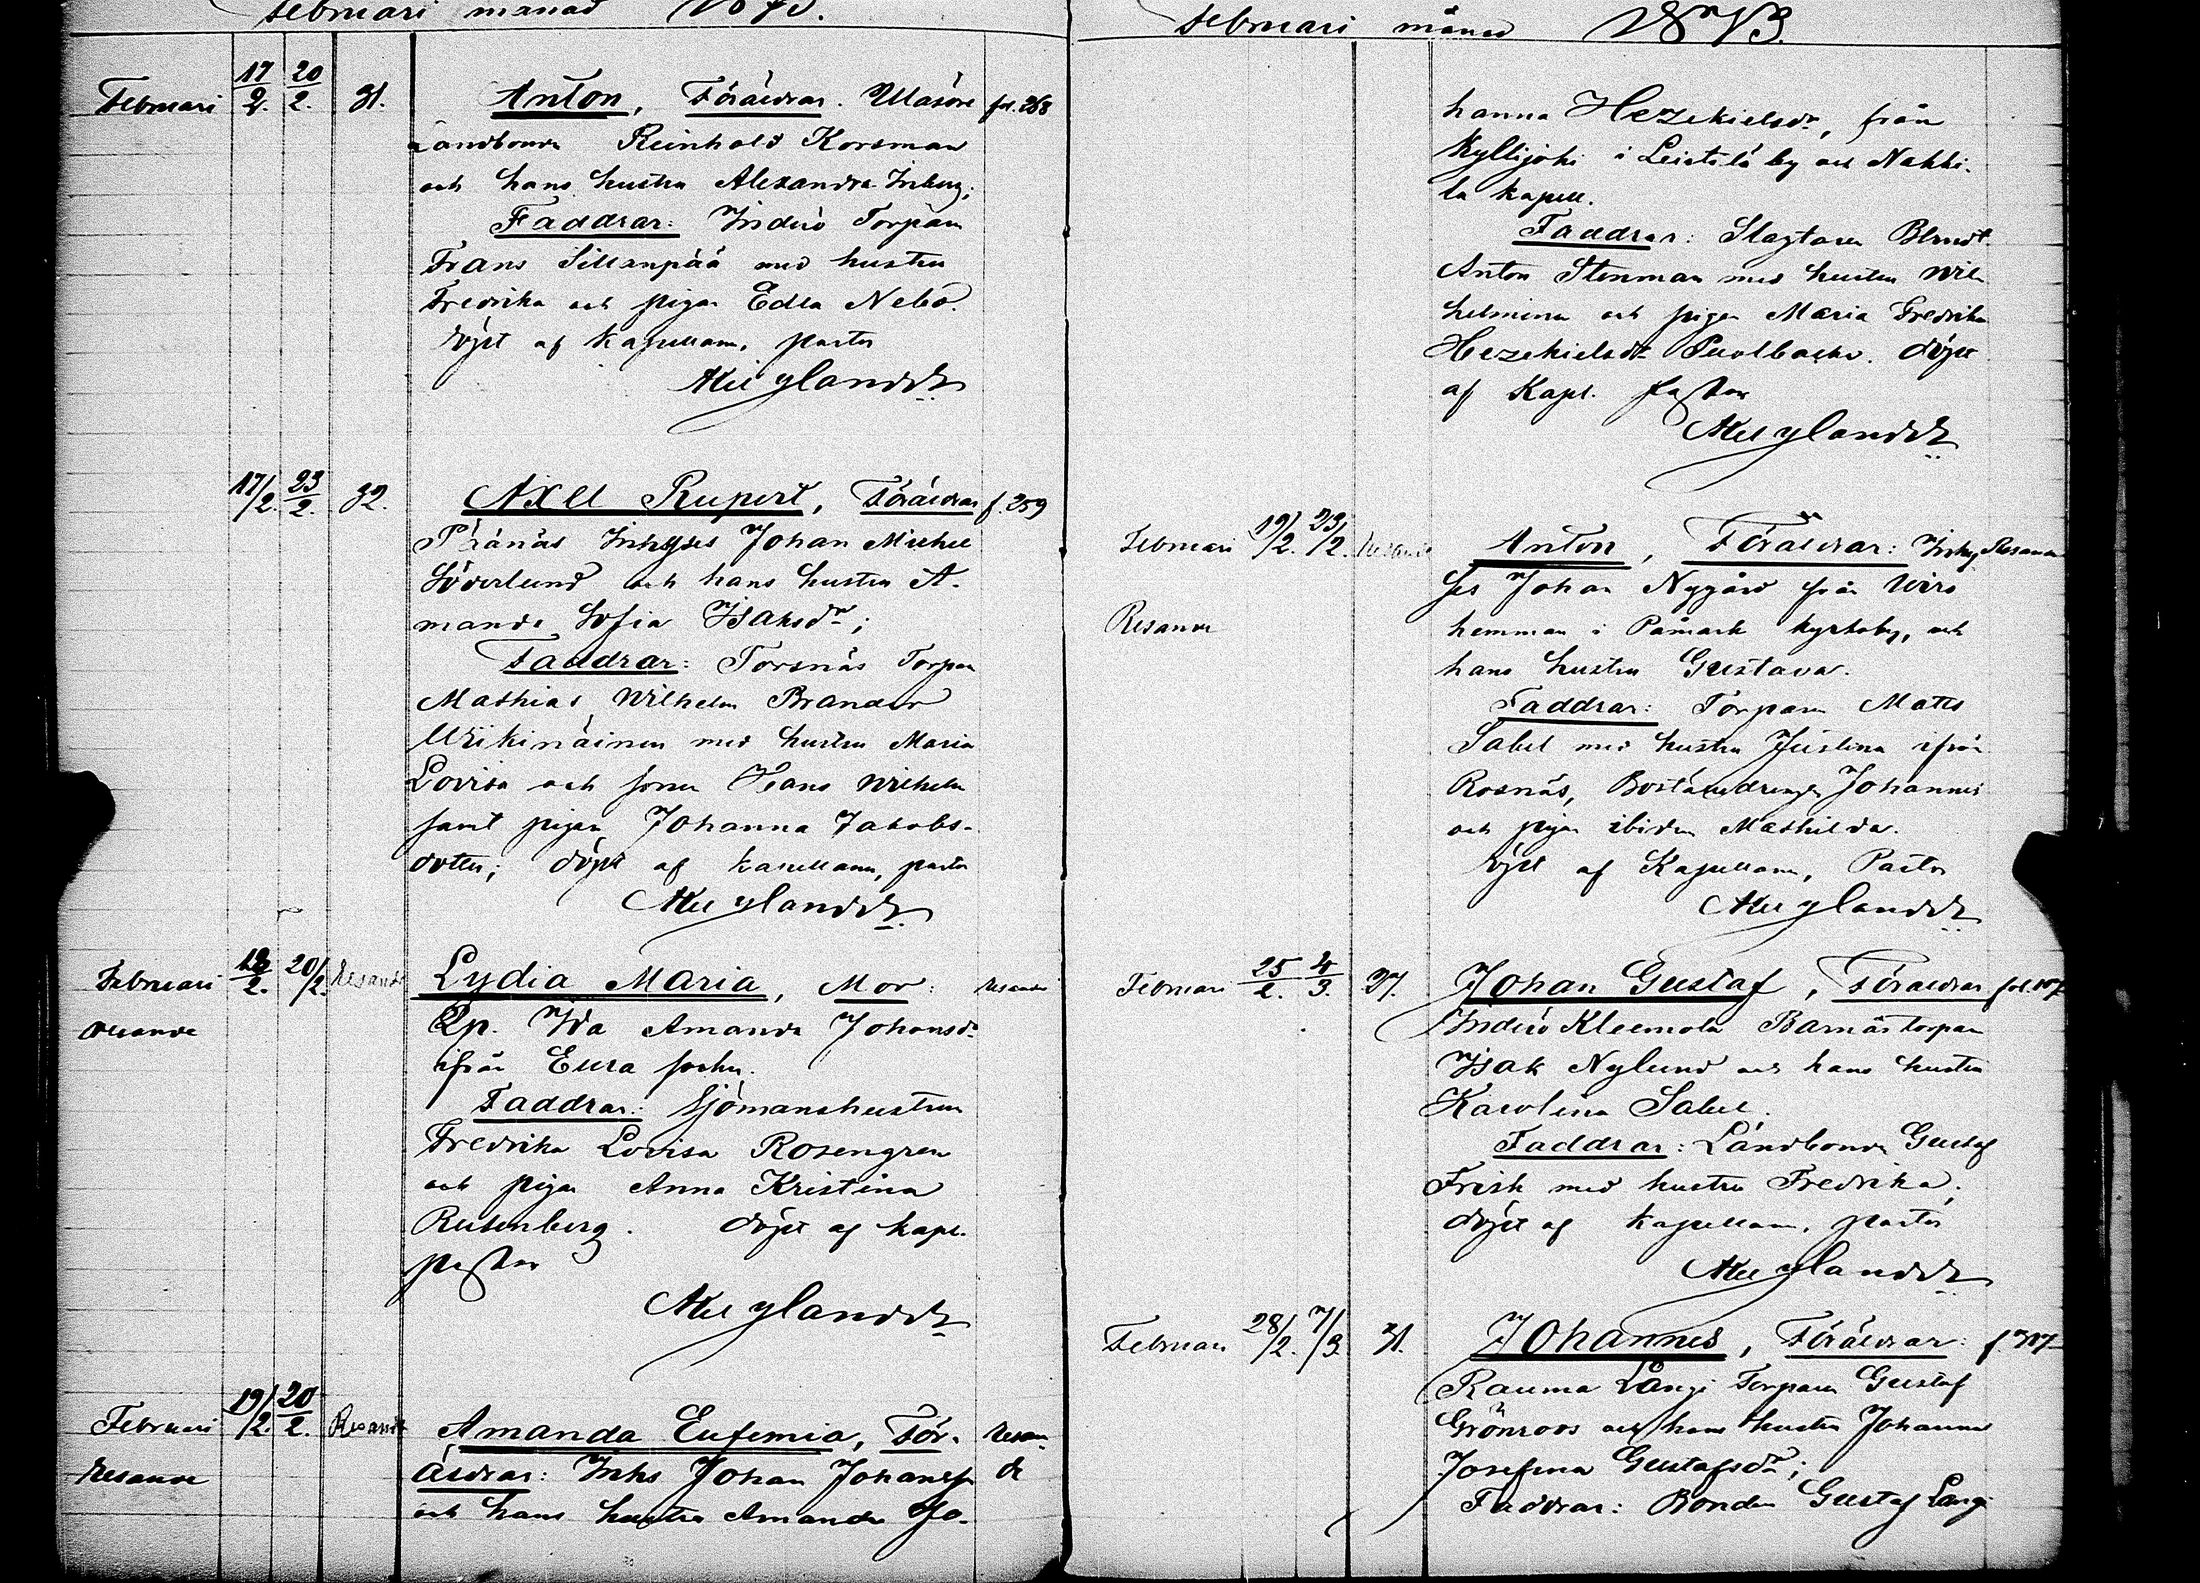 Februari månad
Februari 17/2. 20/2. 31. Anton, Föräldrar. Ulasöre fol. 268
Landbonde Reinhold Korsman
och hans hustru Alexandra Inberg;
Faddrar: Inderö Torparn
Frans Sillanpää med hustru
Fredrika och pigan Edla Nebo.
döpt af Kapellanen, pastor
Axel Ylander
17/2. 23/2. 32. Axel Rupert, Föräldrar f. 259
Påanäs Inhyses Johan Mickel
Söderlund och hans hustru A-
manda Sofia Isaksdr;
Faddrar: Torsnäs Torparn
Mathias Wilhelm Brander
Wiikinäinen med hustru Maria
Lovisa och sonen Frans Wilhelm
samt pigan Johanna Jakobs-
dotter; döpt af kapellanen, pastor
Axel Ylander
Februari 18/2. 20/2. Resande Lydia Maria, Mor: Resande
Resande Qp. Ida Amanda Johansdr
ifrån Eura socken.
Faddrar: Sjömanshustrun
Fredrika Lovisa Rosengren
och pigan Anna Kristina
Rutenberg. döpt af kapl.
pastor
Axel Ylander
Februari 19/2. 20/2. Resande Amanda Eufemia, För- Resan-
Resande äldrar: Inhs Johan Johansson de
och hans hustru Amanda Jo-
Februari månad 1873.
hanna Hezekielsdr, från
Kyllijoki i Leistilä by och Nakki-
la kapell.
Faddrar: Slagtaren Berndt
Anton Stenman med hustru Wil-
helmina och pigan Maria Fredrika
Hezekielsdr Puolbacka. döpt
af Kapl. pastor
Axel Ylander
Februari 19/2. 23/2. Resande Anton, Föräldrar: Inhy- Resande
Resande ses Johan Nygård från Wiro
hemman i Påmark kyrkoby, och
hans hustru Gustava.
Faddrar: Torparn Matts
Sabel med hustru Justina ifrån
Rosnäs, Bostäudrengen Johannes
och pigan ibidem Mathilda.
döpt af Kapellanen, Pastor
Axel Ylander
Februari 25/2. 4/3. 37. Johan Gustaf, Föräldrar fol. 107
Inderö Kleemola Barnäs torparn
Isak Nylund och hans hustru
Karolina Sabel.
Faddrar: Landbonden Gustaf
Frisk med hustru Fredrika;
döpt af kapellanen, pastor
Axel Ylander
Februari 28/2. 7/3. 31. Johannes, Föräldrar: f. 317
Rauma Långi Torparn Gustaf
Grönroos och hans hustru Johanna
Josefina Gustafsdr;
Faddrar: Bonden Gustaf Långi